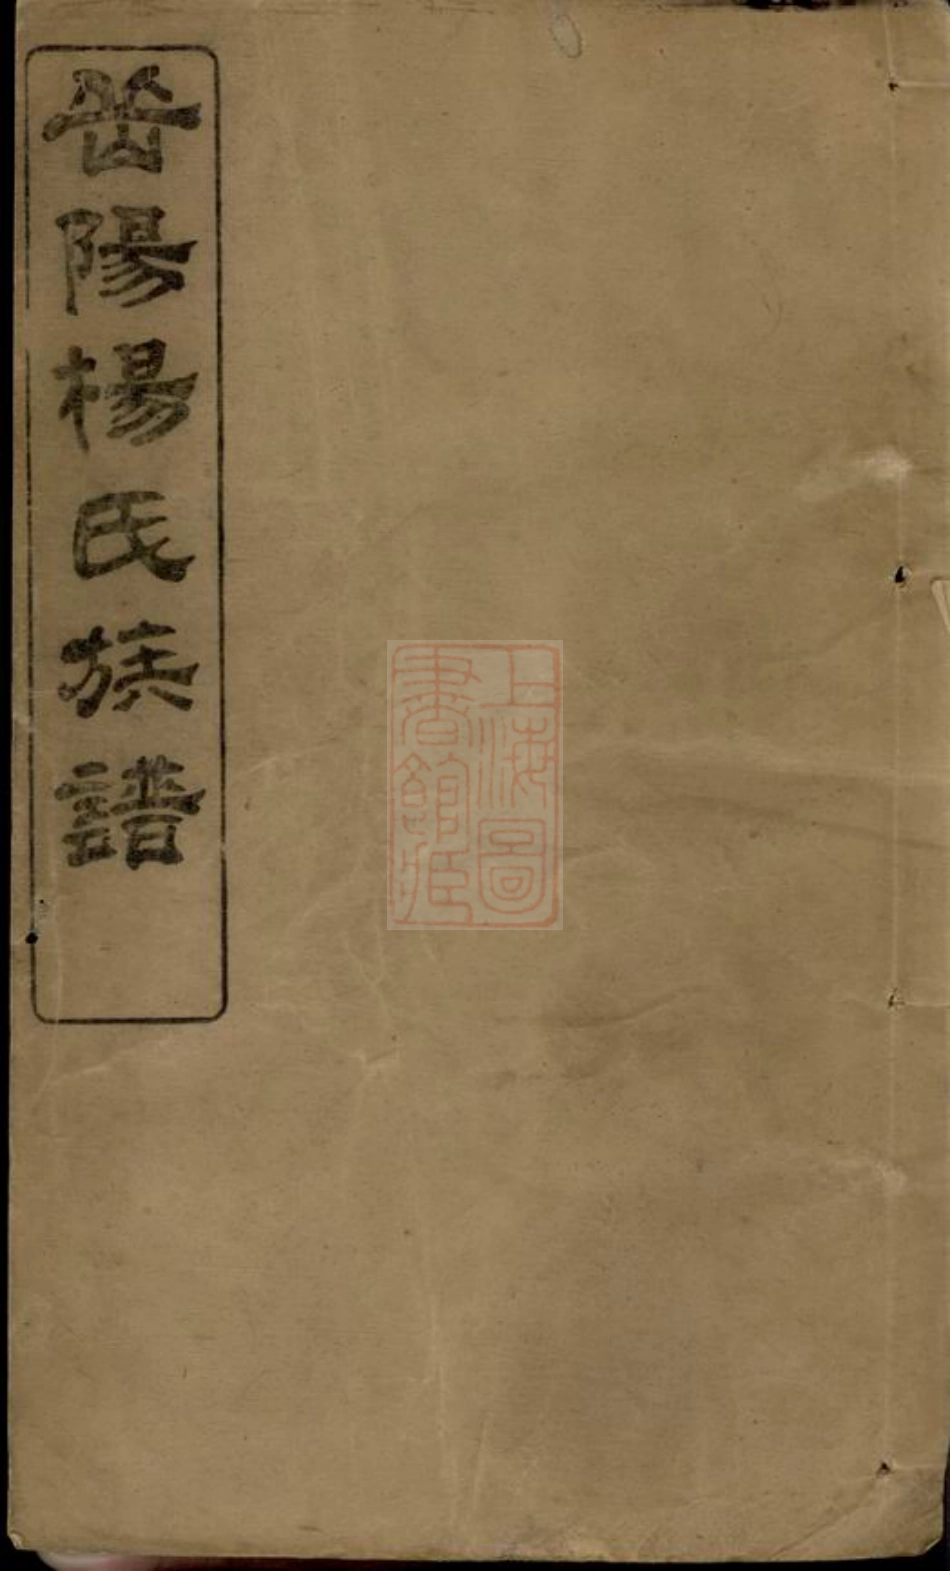 岳陽楊氏族譜
上海圖
書館藏